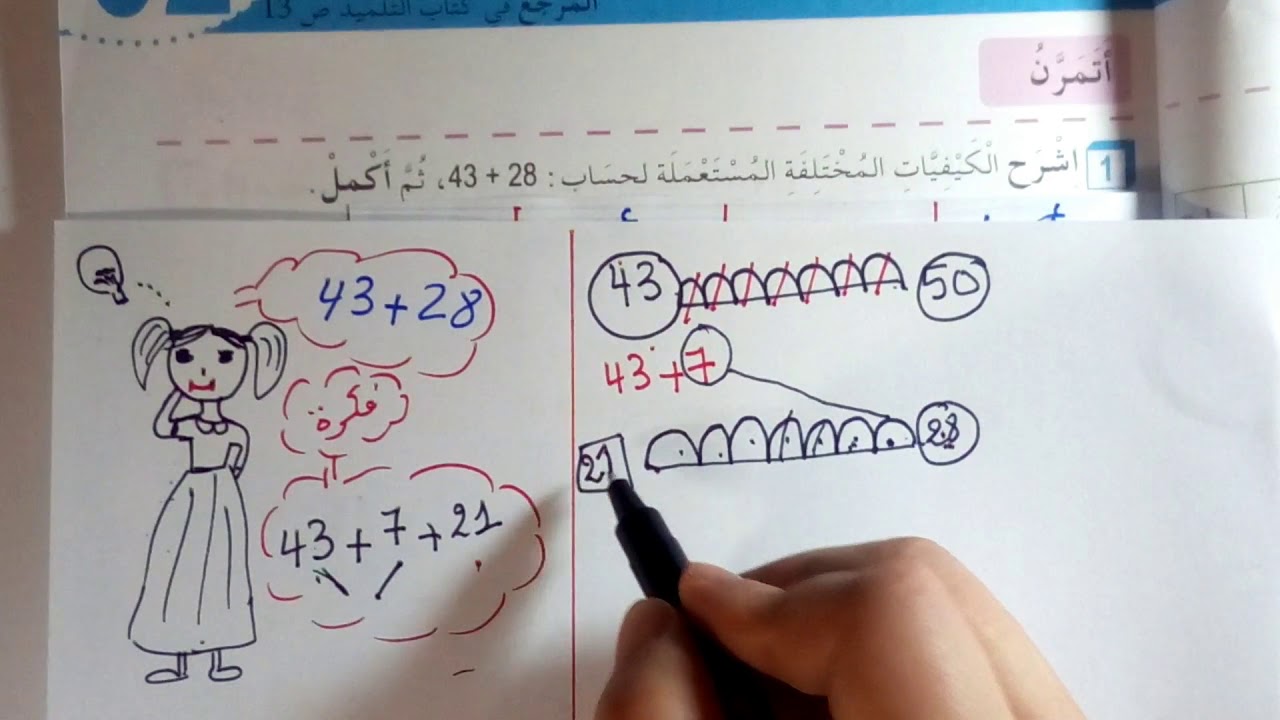 المرجع في كتاب التلميذ ص 13
أَتَمَرَّنُ
1 اِشْرَح الْكَيْفِيَّاتِ المُخْتَلِفَةِ المُسْتَعْمَلَة لحسَاب : 28 + 43، ثُمَّ أَكْملْ.
43 + 28
فكرة
43 + 7 + 21
43 50
43 + 7
21 28